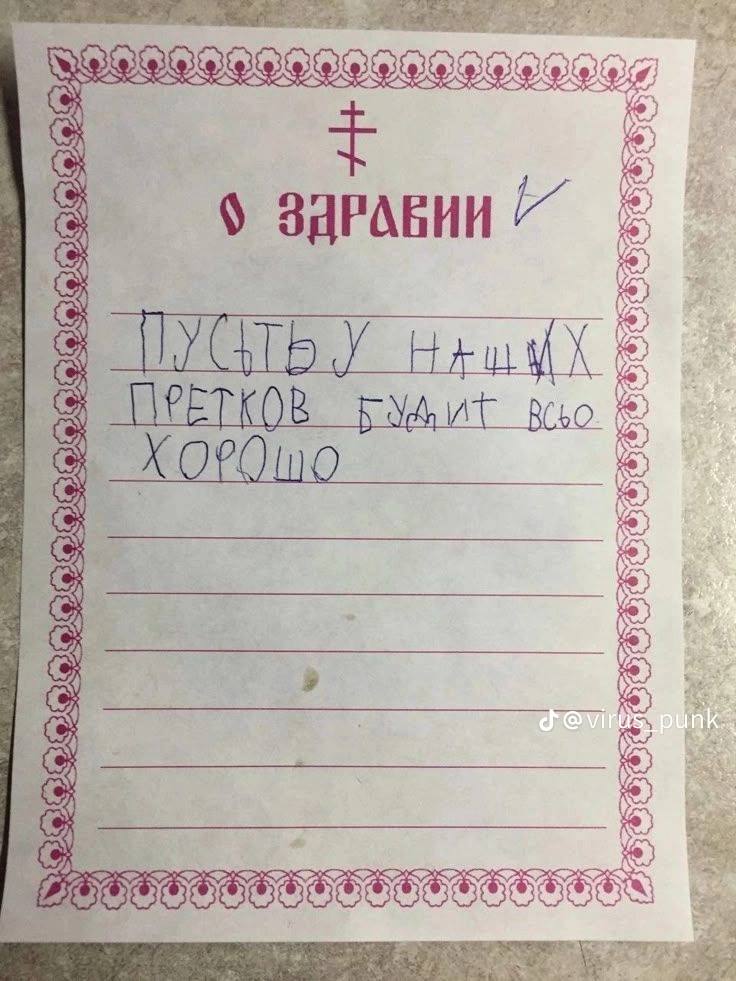 О ЗДРАВИИ
ПУСЬТЬ У НАШИХ
ПРЕТКОВ БУДИТ ВСЬО
ХОРОШО
@virus_punk